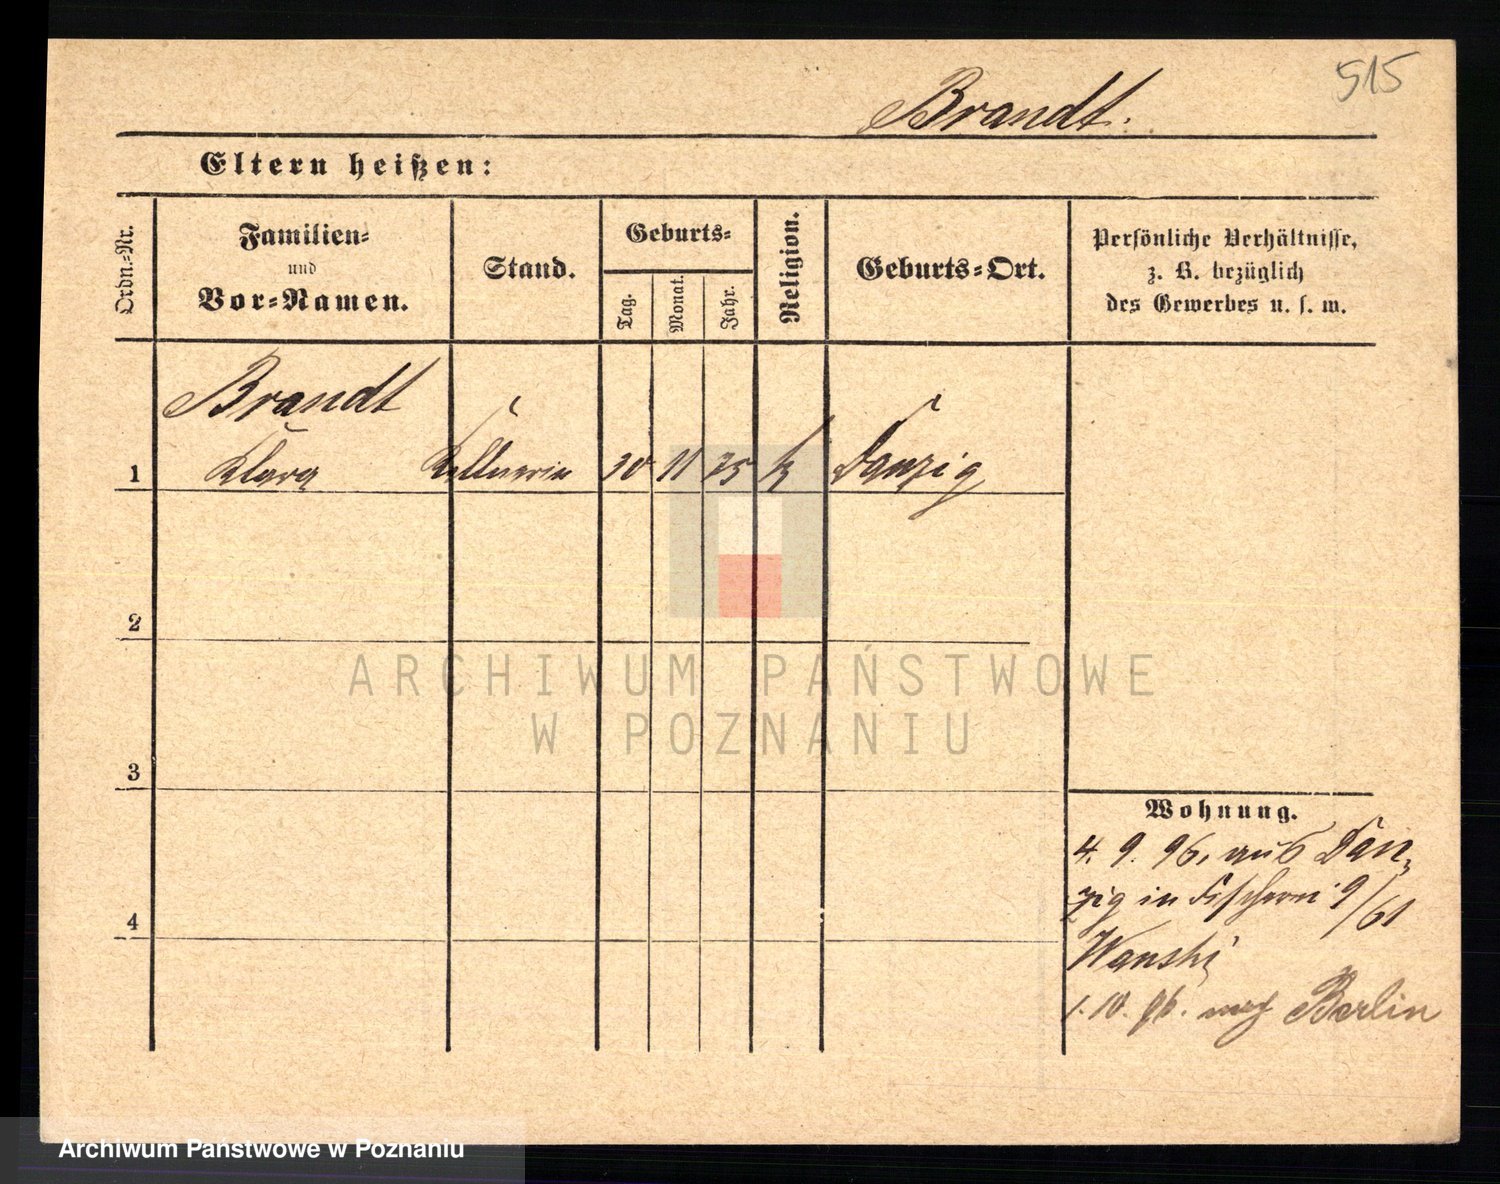 515
Brandt.
Eltern heißen:
Ordn.-Nr.
Familien-
und
Vor-Namen.
Stand.
Geburts-
Tag.
Monat.
Jahr.
Religion.
Geburts-Ort.
Persönliche Verhältnisse,
z. B. bezüglich
des Gewerbes u. s. w.
Brandt
1 Klara Kellnerin 30 11 75 k Danzig
2
3
4
Wohnung.
4. 9. 96. aus Dan-
zig in Fischerei 9/61
Wanski
1. 10. 96. nach Berlin
ARCHIWUM PAŃSTWOWE
W POZNANIU
Archiwum Państwowe w Poznaniu